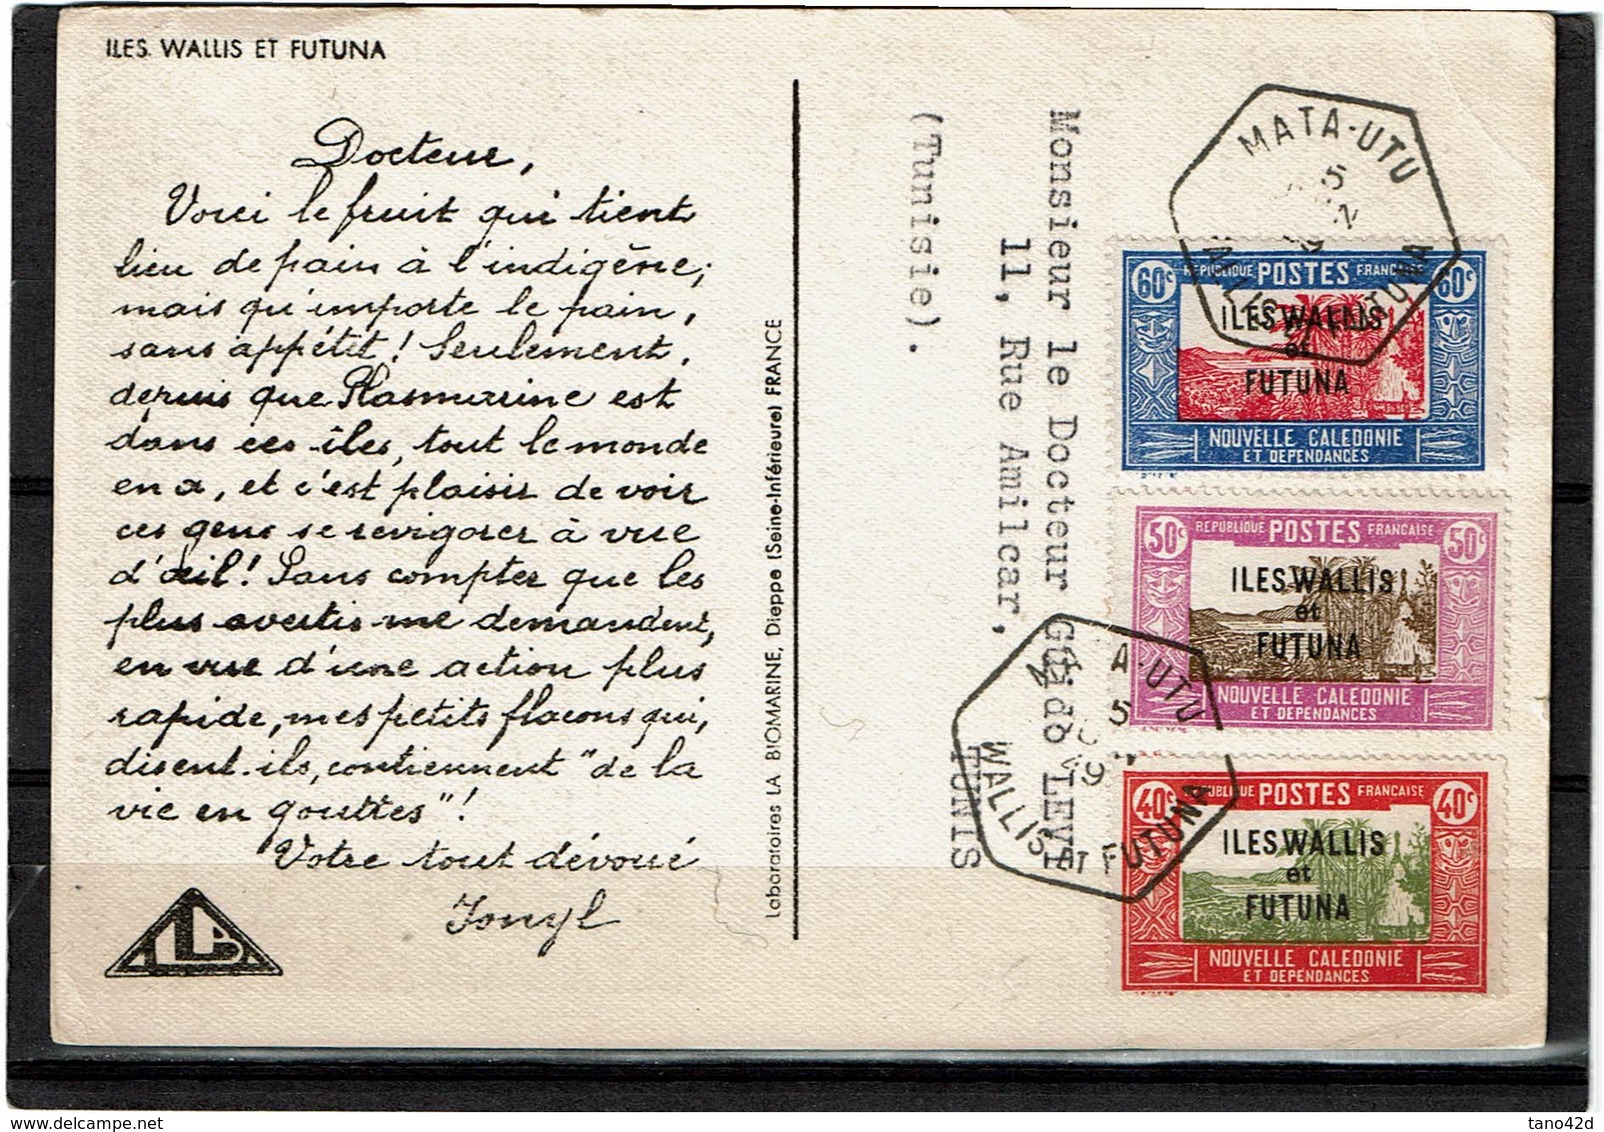 ILES WALLIS ET FUTUNA
Docteur,
Voici le fruit qui tient
lieu de pain à l'indigène;
mais qu'importe le pain,
sans appétit! Seulement,
depuis que Plasmarine est
dans ces îles, tout le monde
en a, et c'est plaisir de voir
ces gens se revigorer à vue
d'œil! Sans compter que les
plus avertis me demandent,
en vue d'une action plus
rapide, mes petits flacons qui,
disent-ils, contiennent "de la
vie en gouttes"!
Votre tout dévoué
Ionyl
Laboratoires LA BIOMARINE, Dieppe (Seine-Inférieure) FRANCE
Monsieur le Docteur Guido LEVI
11, Rue Amilcar,
TUNIS
(Tunisie).
MATA-UTU
WALLIS ET FUTUNA
60c REPUBLIQUE POSTES FRANÇAISE 60c
ILES WALLIS
et
FUTUNA
NOUVELLE CALEDONIE
ET DEPENDANCES
50c REPUBLIQUE POSTES FRANÇAISE 50c
ILES WALLIS
et
FUTUNA
NOUVELLE CALEDONIE
ET DEPENDANCES
A-UTU
WALLIS ET FUTUNA
40c REPUBLIQUE POSTES FRANCAISE 40c
ILES WALLIS
et
FUTUNA
NOUVELLE CALEDONIE
ET DEPENDANCES
tano42d